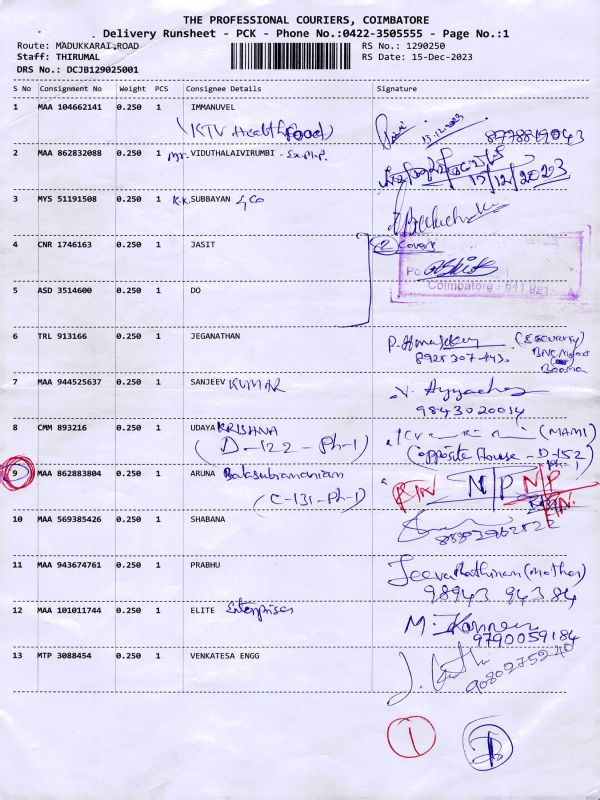 THE PROFESSIONAL COURIERS, COIMBATORE
Delivery Runsheet - PCK - Phone No.:0422-3505555 - Page No.:1
Route: MADUKKARAI,ROAD
RS No.: 1290250
Staff: THIRUMAL
RS Date: 15-Dec-2023
DRS No.: DCJB129025001
S No Consignment No Weight PCS Consignee Details Signature
1 MAA 104662141 0.250 1 IMMANUVEL
(KTV Healthfood)
13.12.2023
2 MAA 862832088 0.250 1 Mr. VIDUTHALAIVIRUMBI - Ex.M.P.
3 MYS 51191508 0.250 1 K.K. SUBBAYAN & Co
4 CNR 1746163 0.250 1 JASIT
2 Covers
Coimbatore - 641 021
5 ASD 3514600 0.250 1 DO
6 TRL 913166 0.250 1 JEGANATHAN
(Security)
7 MAA 944525637 0.250 1 SANJEEV KUMAR
9843020014
8 CMM 893216 0.250 1 UDAYA KRISHNA
(MAMI)
(D-122-Ph-1)
(opposite House - D-152
Ph-1)
9 MAA 862883804 0.250 1 ARUNA Balasubramaniam
N/P N/P
(C-131-Ph-1)
10 MAA 569385426 0.250 1 SHABANA
11 MAA 943674761 0.250 1 PRABHU
Jeeva Rathinam (mother)
98943 94384
12 MAA 101011744 0.250 1 ELITE Enterprises
M. Kannan
9790059184
13 MTP 3088454 0.250 1 VENKATESA ENGG
9080275240
1